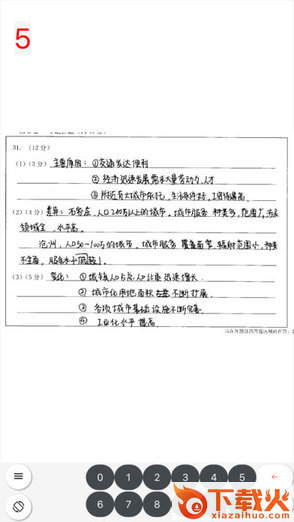 5
31. (12分)
(1)(3分) 主要原因: ①交通发达便利
② 经济迅速发展需求大量劳动力、人才
③ 附近有大城市依托, 生活条件好, 工资待遇高
(2)(4分) 差异: 石家庄, 人口200万以上的城市, 城市服务 种类多, 范围广, 涉及
领域全, 水平高。
沧州, 人口50~100万的城市, 城市服务 覆盖面窄, 辐射范围小, 种类
不全面, 服务水平
(3)(5分) 变化: ①城镇人口占总人口比重 迅速增长.
② 城市化用地面积 不断扩展.
③ 各项城市基础设施不断完善.
④ 工业化水平 提高.
0 1 2 3 4 5 ←
6 7 8
下载火
xiazaihuo.com